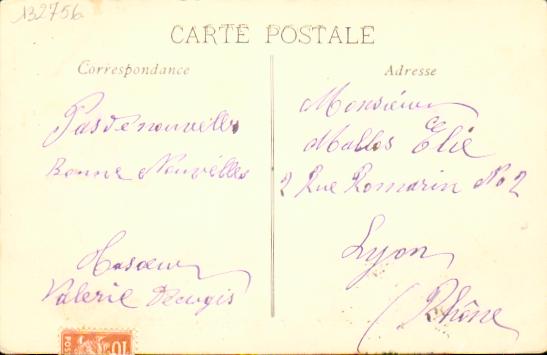 132756
CARTE POSTALE
Correspondance
Adresse
Pas de nouvelles
Bonne Nouvelles
Masoeur
Valerie
Monsieur
Mallos Elie
2 Rue Romarin No 2
Lyon
(Rhône
10
POS